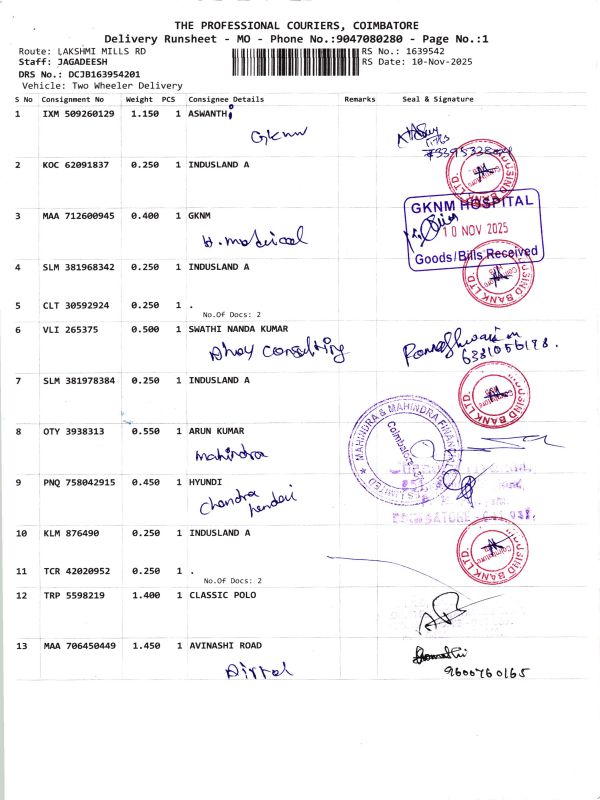 THE PROFESSIONAL COURIERS, COIMBATORE
Delivery Runsheet - MO - Phone No.:9047080280 - Page No.:1
Route: LAKSHMI MILLS RD RS No.: 1639542
Staff: JAGADEESH RS Date: 10-Nov-2025
DRS No.: DCJB163954201
Vehicle: Two Wheeler Delivery
S No Consignment No Weight PCS Consignee Details Remarks Seal & Signature
1 IXM 509260129 1.150 1 ASWANTH
GKNM
2 KOC 62091837 0.250 1 INDUSLAND A
INDUSIND BANK LTD.
3 MAA 712600945 0.400 1 GKNM
H. medical
GKNM HOSPITAL
10 NOV 2025
Goods/Bills Received
4 SLM 381968342 0.250 1 INDUSLAND A
INDUSIND BANK LTD.
5 CLT 30592924 0.250 1 .
No.Of Docs: 2
6 VLI 265375 0.500 1 SWATHI NANDA KUMAR
Ahoy consulting
6381056198.
7 SLM 381978384 0.250 1 INDUSLAND A
INDUSIND BANK LTD.
8 OTY 3938313 0.550 1 ARUN KUMAR
mahindra
MAHINDRA & MAHINDRA FINANCIAL
LIMITED
Coimbatore
9 PNQ 758042915 0.450 1 HYUNDI
chandra
10 KLM 876490 0.250 1 INDUSLAND A
INDUSIND BANK LTD.
11 TCR 42020952 0.250 1 .
No.Of Docs: 2
12 TRP 5598219 1.400 1 CLASSIC POLO
13 MAA 706450449 1.450 1 AVINASHI ROAD
Airtel
9600760165